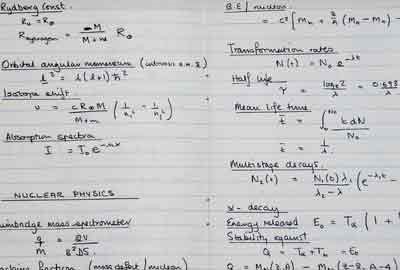 Rydberg Const.
R∞ = R∞
R hydrogen = M / M+m R∞
Orbital angular momentum
l² = l(l+1)ħ²
Isotope shift.
υ = cR∞M / M+m (1/n₁² - 1/n₂²)
Absorption spectra
I = I₀e^-nαx
NUCLEAR PHYSICS
Bainbridge mass spectrometer
q/M = 2V / B²DS
fraction (mass defect/nucleon)
B.E / nucleon
= c²[Mn + Z/A (MH - Mn) -
Transformation rates
N(t) = N₀e^-λt
Half life
τ = loge2 / λ = 0.693 / λ
Mean life time
t̄ = ∫₀^N₀ t dN / N₀
t̄ = 1/λ
Multistage decays.
N₂(t) = N₁(0)λ₁ / λ₂ - λ₁ (e^-λ₁t -
α - decay
Energy released E₀ = Tα (1 +
Stability against
Q = Tα + Tb = E₀
Q = Mn(Z,A) - Mn(Z-2, A-4)